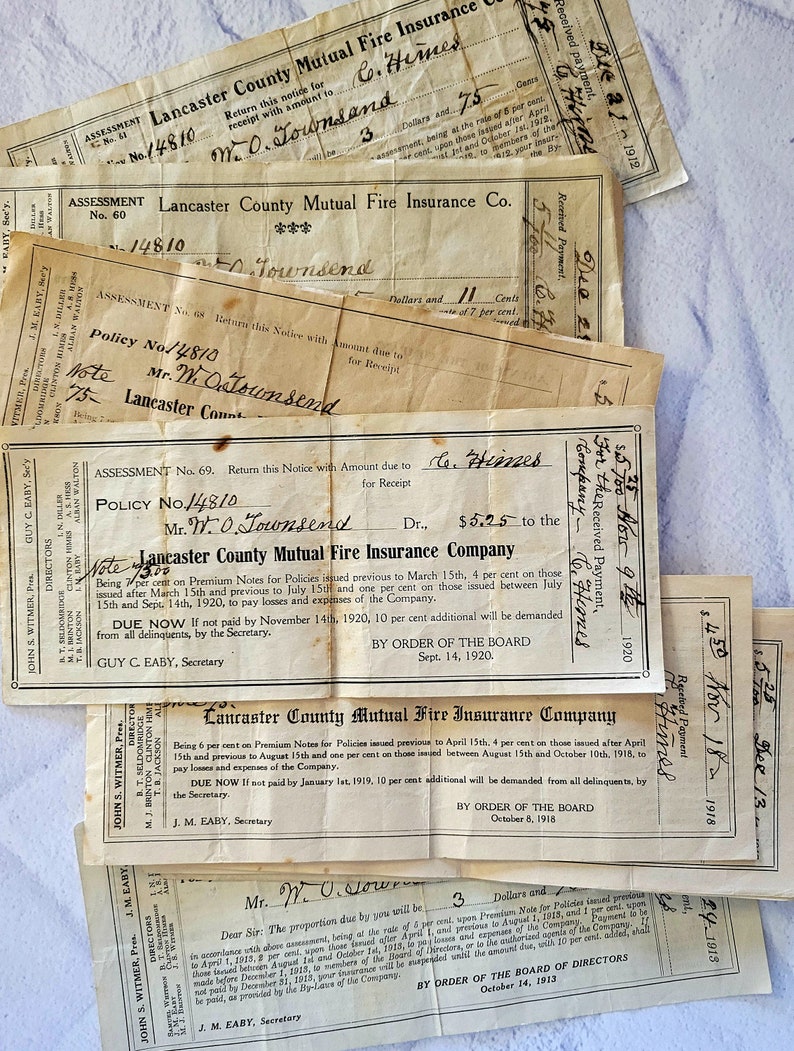 ASSESSMENT
No. 61
Lancaster County Mutual Fire Insurance Co
Return this notice for
receipt with amount to C. Himes
Policy No. 14810
W. O. Townsend
will be 3 Dollars and 75 Cents
assessment, being at the rate of 5 per cent.
per cent. upon those issued after April
August 1st and October 1st, 1912,
1912, to members of the
Received payment,
C. Himes
1912
DILLER
HESS
ALBAN WALTON
EABY, Sec'y.
ASSESSMENT
No. 60
Lancaster County Mutual Fire Insurance Co.
14810
W. O. Townsend
Dollars and 11 Cents
rate of 7 per cent.
issued
Received Payment,
5-11
WITMER, Pres. J. M. EABY, Sec'y
DIRECTORS I. N. DILLER A. S. HESS
SELDOMRIDGE CLINTON HIMES ALBAN WALTON
ASSESSMENT No. 68 Return this Notice with Amount due to
for Receipt
Policy No. 14810
Note
75-
Mr. W. O. Townsend
Lancaster Coun
JOHN S. WITMER, Pres. GUY C. EABY, Sec'y
DIRECTORS
B. T. SELDOMRIDGE I. N. DILLER
M. J. BRINTON CLINTON HIMES A. S. HESS
T. B. JACKSON J. M. EABY ALBAN WALTON
ASSESSMENT No. 69. Return this Notice with Amount due to C. Himes
for Receipt
POLICY No. 14810
Mr. W. O. Townsend Dr., $5.25 to the
Lancaster County Mutual Fire Insurance Company
Note 75.00
Being 7 per cent on Premium Notes for Policies issued previous to March 15th, 4 per cent on those
issued after March 15th and previous to July 15th and one per cent on those issued between July
15th and Sept. 14th, 1920, to pay losses and expenses of the Company.
DUE NOW If not paid by November 14th, 1920, 10 per cent additional will be demanded
from all delinquents, by the Secretary.
BY ORDER OF THE BOARD
GUY C. EABY, Secretary
Sept. 14, 1920.
Received Payment,
For the
Company- C Himes
1920
JOHN S. WITMER, Pres.
DIRECTORS
B. T. SELDOMRIDGE
M. J. BRINTON CLINTON HIMES
T. B. JACKSON
Lancaster County Mutual Fire Insurance Company
Being 6 per cent on Premium Notes for Policies issued previous to April 15th, 4 per cent on those issued after April
15th and previous to August 15th and one per cent on those issued between August 15th and October 10th, 1918, to
pay losses and expenses of the Company.
DUE NOW If not paid by January 1st, 1919, 10 per cent additional will be demanded from all delinquents, by
the Secretary.
BY ORDER OF THE BOARD
J. M. EABY, Secretary
October 8, 1918
$4.50 Nov 18 1918
Received Payment
Himes
Dec 13
JOHN S. WITMER, Pres. J. M. EABY,
DIRECTORS
SAMUEL WHITSON B. T. SELDOMRIDGE
J. M. EABY CLINTON HIMES
M. J. BRINTON J. S. WITMER
Mr. W. O. Townsend
Dear Sir: The proportion due by you will be 3 Dollars and
in accordance with above assessment, being at the rate of 5 per cent. upon Premium Note for Policies issued previous
to April 1, 1913, 2 per cent. upon those issued after April 1, and previous to August 1, 1913, and 1 per cent. upon
those issued between August 1st and October 1st, 1913, to pay losses and expenses of the Company. Payment to be
made before December 1, 1913, to members of the Board of Directors, or to the authorized agents of the Company. If
not paid by December 31, 1913, your insurance will be suspended until the amount due, with 10 per cent. added, shall
be paid, as provided by the By-Laws of the Company.
BY ORDER OF THE BOARD OF DIRECTORS
J. M. EABY, Secretary
October 14, 1913
1913